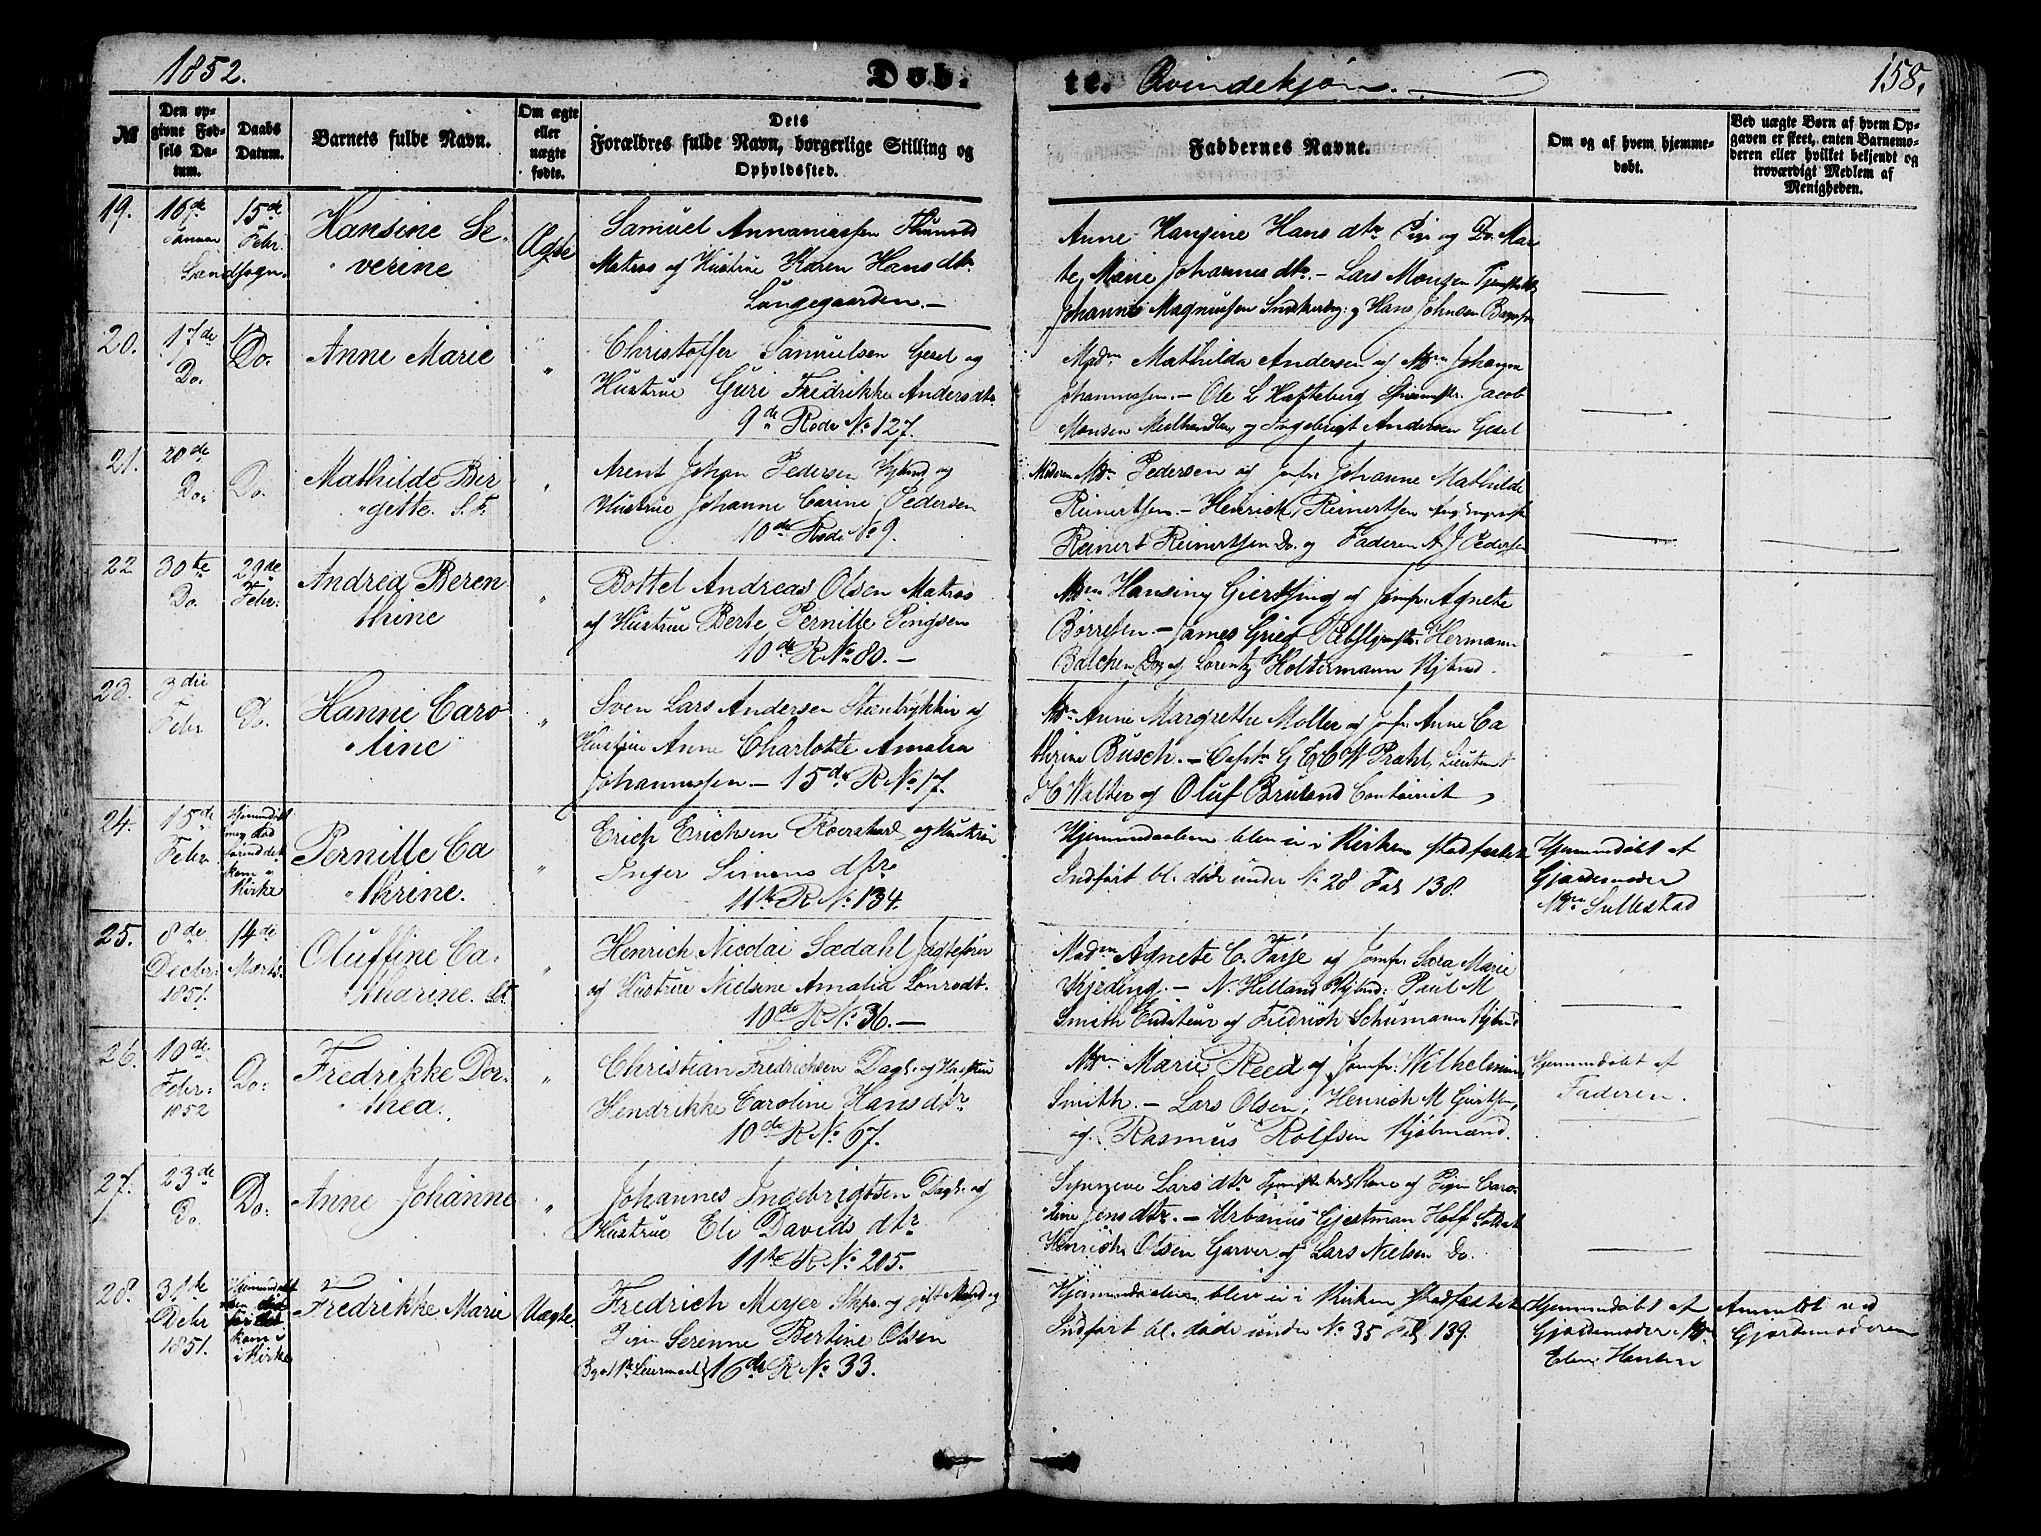 1852.
Døb.
te. Qvindekjøn.
158.
No
Den op-
givne Fød-
sels Da-
tum.
Daabs
Datum.
Barnets fulde Navn.
Om ægte
eller
uægte
fødte.
Dets
Forældres fulde Navn, borgerlige Stilling og
Opholdssted.
Faddernes Navne.
Om og af hvem hjemme-
døbt.
Ved uægte Børn af hvem Op-
gaven er skeet, enten Barnemo-
deren eller hvilket bekjendt og
troværdigt Medlem af
Menigheden.
19.
16de
Januar
Landsogn.
15de
Febr:
Hansine Se-
verine
Ægte
Samuel Annaniassen
Matros og Hustrue Karen Hansdtr
Lungegaarden.
Anne Hansine Hansdtr Pige og Do. Mar-
the Marie Johannesdtr. Lars Monsen
Johannes Magnussen og Hans Johnsen
20.
17de
Do.
Do.
Anne Marie
"
Christoffer Samuelsen Gesel og
Hustrue Guri Fredrikke Andersdtr
9de Rode No 127.
Madm Mathilda Andersen og Mdm Johanna
Johannessen. Ole L Hafteberg Jacob
Monsen og Ingebrigt Andersen Gesel
21.
20de
Do:
Do.
Mathilde Bir
gitte. S. F.
"
Arent Johan Pedersen Kjbmd og
Hustrue Johanne Carine Pedersen
10de Rode No 9.
Moderen Mdm Pedersen og Jomfr Johanne Mathilde
Reinertsen. Henrich Reinertsen
Reinert Reinertsen Do. og Faderen A J Pedersen
22
30te
Do.
29de
Febr:
Andrea Beren
thine
"
Bottel Andreas Olsen Matros
og Hustrue Berte Pernille
10de R No 80.
Mdm Hansine Giertsing og Jomfr: Agnete
Børresen. James Grieg Hermann
Balchen Do og Lorentz Holtermann Kjbmd.
23.
3die
Febr
Do.
Hanne Caro
line
"
Sven Lars Andersen Steentrykker og
Hustrue Anne Charlotte Amalia
Johannessen 15de R No 17.
Mdm Anne Margrethe Møller og Jomfr. Anne Ca
thrine Busch. Captn G E C W Prahl, Lieutnant
Walter og Oluf Bruland Contoirist
24.
15de
Febr
Hjemmedøbt
og død
forind det
kom i
Kirke
Pernille Ca
thrine.
"
Erich Erichsen og Hustrue
Inger Simonsdtr
11te R No 134.
Hjemmedaaben blev ei i Kirken stadfæstet
Indført bl. døde under No 28 Fol 138.
Hjemmedøbt af
Gjordemoder
Mdm Sullestad
25.
8de
Decbr:
1851.
14de
Marts.
Oluffine Ca-
tharine.
"
Henrich Nicolai Sædahl Jagtefører
og Hustrue Nielsine Amalia
10de R No 36.
Madm Agnete C. og Jomfr. Sara Marie
Kjeding. N. Helland Kjbmd: Paul M
Smith og Fredrich Schumann Kjbmd
26.
10de
Febr:
1852
Do:
Fredrikke Dor-
thea.
"
Christian Fredrichsen Dagl. og Hustrue
Hendrikke Caroline Hansdtr
10de R No 67.
Mdm Marie Reed og Jomfr: Wilhelmine
Smith. Lars Olsen, Henrich M Giertsen,
og Rasmus Rolfsen Kjøbmænd.
Hjemmedøbt af
Faderen.
27.
23de
Do.
Do:
Anne Johanne
"
Johannes Ingebrigtsen Dagl. og
Hustrue Eli Davidsdtr
11te R No 205.
Synneve Larsdtr Kone og Pigen Caro-
line Jensdtr. Urbanus Gjestman Hoff
Henrich Olsen Garver og Lars Nielsen Do.
28.
31te
Debr
1851.
Hjemmedøbt
kom i
Kirke
Fredrikke Marie
Uægte.
Fredrich Meyer Skpr. og gift Mand og
Pige Serenne Bertine Olsen
(Begge 1te Leiermaal) 16de R No 33.
Hjemmedaaben blev ei i Kirken Stadfæstet
Indført bl. døde under No 35 Fol 139.
Hjemmedøbt af
Gjordemoder Mdm
Hansen
Anmeldt ved
Gjordemoderen